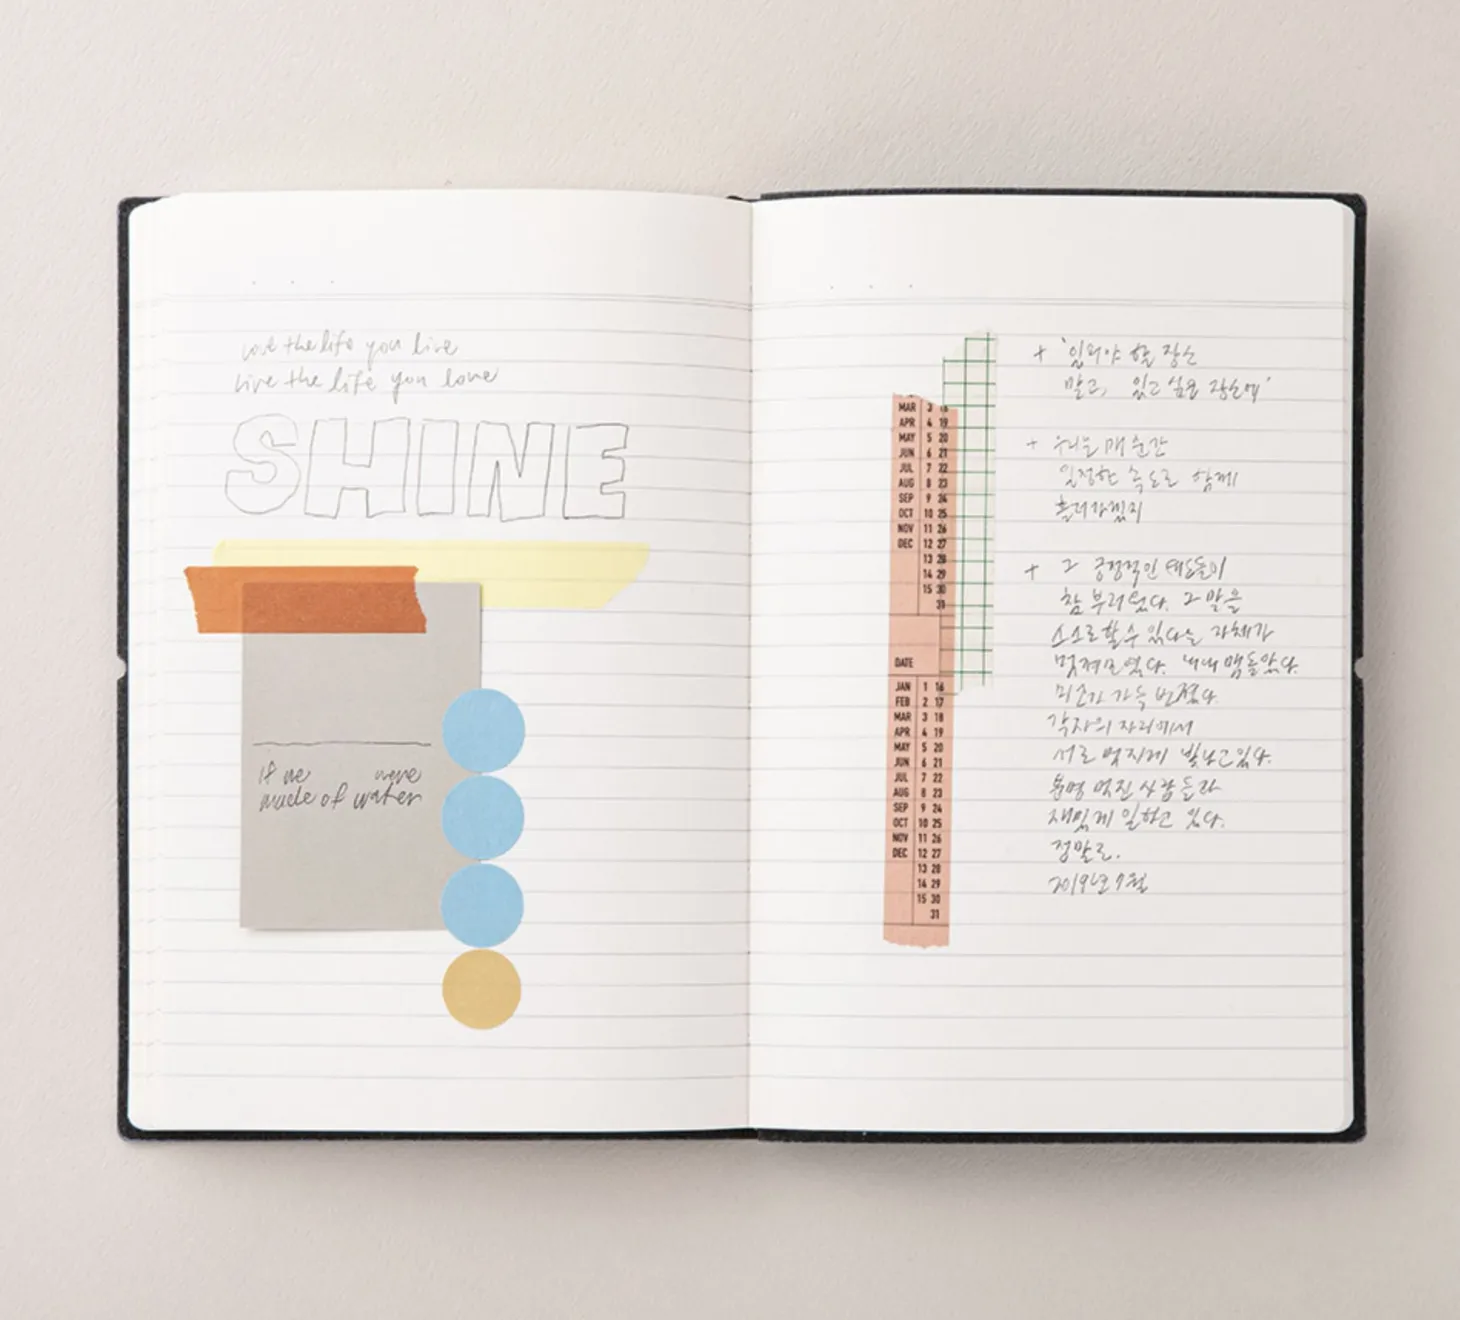 Love the life you live
Live the life you love
SHINE
If we were
made of water
MAR 3 18
APR 4 19
MAY 5 20
JUN 6 21
JUL 7 22
AUG 8 23
SEP 9 24
OCT 10 25
NOV 11 26
DEC 12 27
13 28
14 29
15 30
31
DATE
JAN 1 16
FEB 2 17
MAR 3 18
APR 4 19
MAY 5 20
JUN 6 21
JUL 7 22
AUG 8 23
SEP 9 24
OCT 10 25
NOV 11 26
DEC 12 27
13 28
14 29
15 30
31
+ '있어야 할 장소
말고, 있고 싶은 장소에'
+ 우리는 매 순간
일정한 속도로 함께
흘러가겠지
+ 그 긍정적인 태도들이
참 부러웠다. 그 말을
스스로 할 수 있다는 자체가
멋져보였다. 내내 맴돌았다.
미소가 가득 번졌다.
각자의 자리에서
서로 멋지게 빛나고 있다.
분명 멋진 사람들과
재밌게 일하고 있다.
정말로.